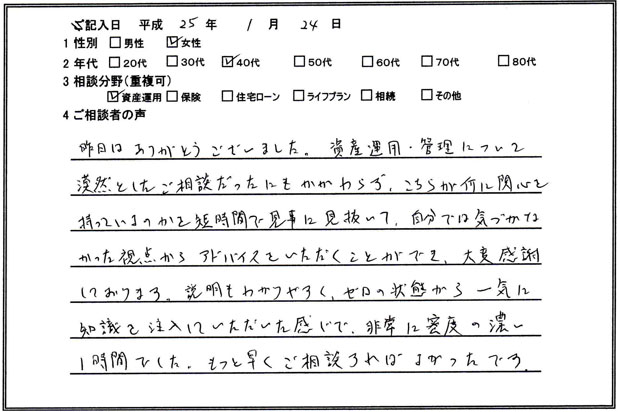 ご記入日 平成 25 年 1 月 24 日
1 性別 □男性 ☑女性
2 年代 □20代 □30代 ☑40代 □50代 □60代 □70代 □80代
3 相談分野(重複可)
☑資産運用 □保険 □住宅ローン □ライフプラン □相続 □その他
4 ご相談者の声
昨日は ありがとうございました。 資産運用・管理について
漠然としたご相談だったにもかかわらず、こちらが何に関心を
持っているのかを短時間で見事に見抜いて、自分では気づかな
かった視点から アドバイスをいただくことができ、大変感謝
しております。説明もわかりやすく、ゼロの状態から 一気に
知識を注入していただいた感じで、非常に密度の濃い
1時間でした。もっと早くご相談すればよかったです。